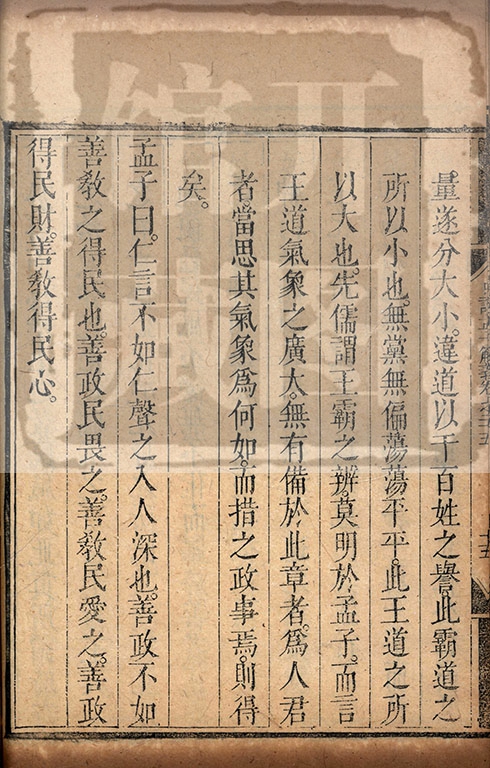 量遂分大小。違道以干百姓之譽。此霸道之
所以小也。無黨無偏。蕩蕩平平。此王道之所
以大也。先儒謂王霸之辨。莫明於孟子。而言
王道氣象之廣大。無有備於此章者。為人君
者。當思其氣象為何如。而措之政事焉。則得
矣。
孟子曰。仁言不如仁聲之入人深也。善政不如
善教之得民也。善政民畏之。善教民愛之。善政
得民財。善教得民心。